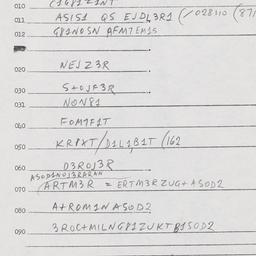 010
011 ASIS1 QS EJDL3R1 (/028310 (871
012 G81NOSN AFM7EM1S
020 NEJZ3R
030 S+OJF3R
031 NON81
040 FOM7F1T
050 KR8XT/D1L1B1T (162
060 D3ROJ3R
ASOD1NOJ3RARAN
070 (ARTM3R = ERTM3RZUG+ASOD2
080 A+ROM1NASOD2
090 3ROC+MILNG81ZUKTB1SOD2